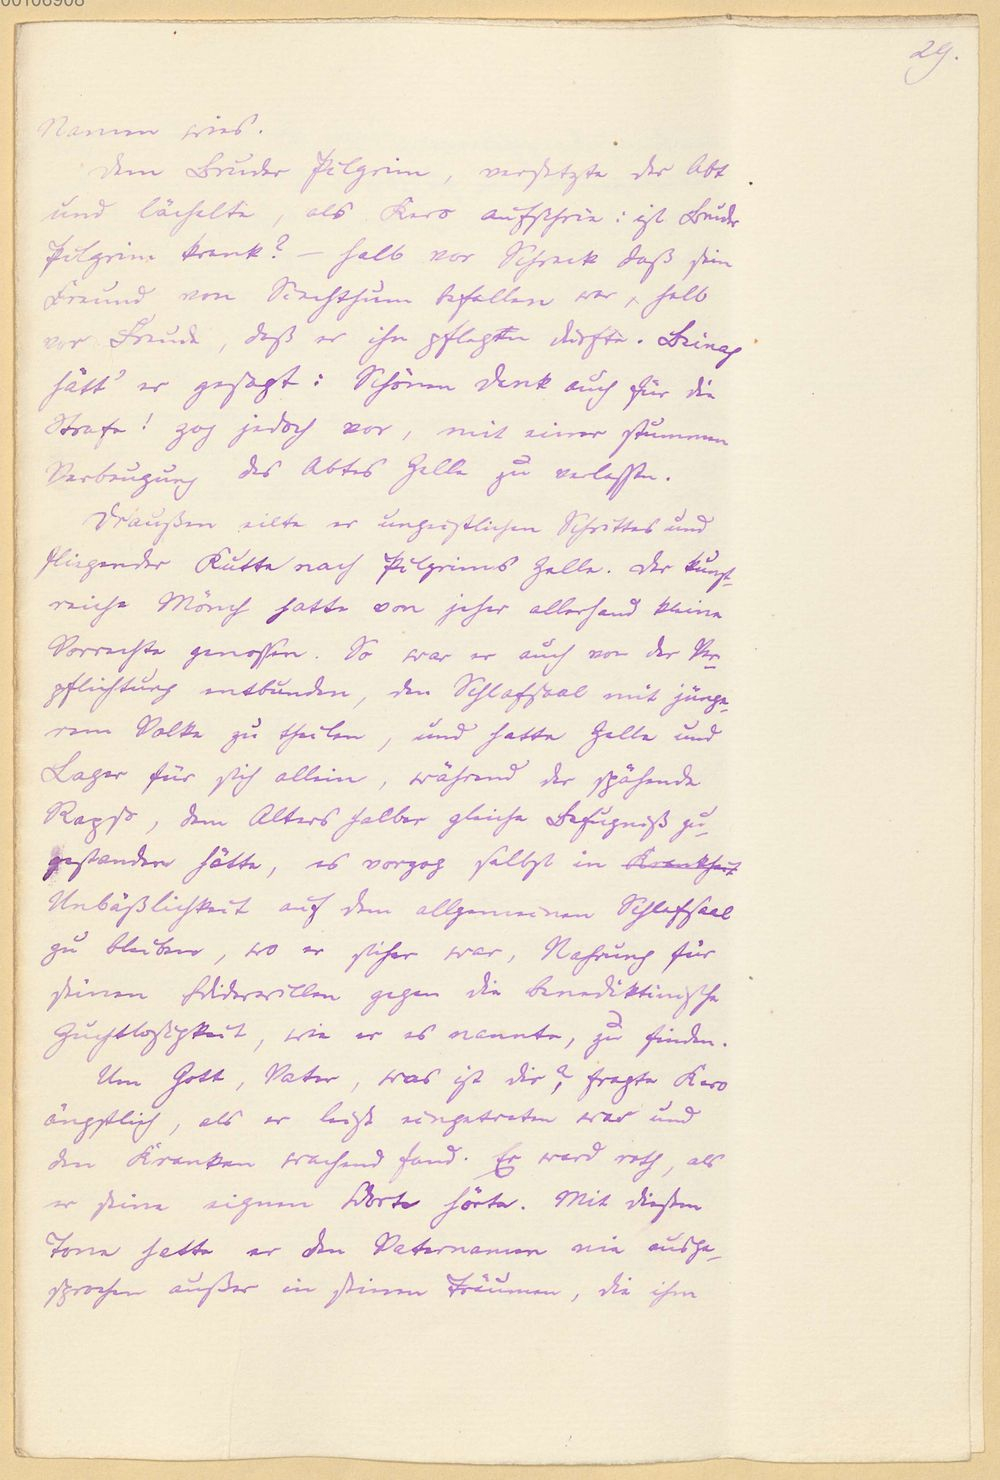 00106908
29.
Namen wies.
Dem Bruder Pilgrim, versetzte der Abt
und lächelte, als Kero aufschrie: ist Bruder
Pilgrim krank? — halb vor Schreck daß sein
Freund von Siechthum befallen war, halb
vor Freude, daß er ihn pflegen dürfte. Beinah
hätt' er gesagt: Schönen Dank auch für die
Strafe! zog jedoch vor, mit einer stummen
Verbeugung des Abtes Zelle zu verlassen.
Draußen eilte er ungeistlichen Schrittes und
fliegender Kutte nach Pilgrims Zelle. Der kunst-
reiche Mönch hatte von jeher allerhand kleine
Vorrechte genossen. So war er auch von der Ver-
pflichtung entbunden, den Schlafsaal mit jünge-
rem Volke zu theilen, und hatte Zelle und
Lager für sich allein, während der spähende
Rapso, dem Alters halber gleiche Befugniß zu-
gestanden hätte, es vorzog selbst in Krankheit
Unbäßlichkeit auf dem allgemeinen Schlafsaal
zu bleiben, wo er sicher war, Nahrung für
seinen Widerwillen gegen die benediktinische
Zuchtlosigkeit, wie er es nannte, zu finden.
Um Gott, Vater, was ist dir?, fragte Kero
ängstlich, als er leise eingetreten war und
den Kranken wachend fand. Er ward roth, als
er seine eignen Worte hörte. Mit diesem
Tone hatte er den Vaternamen nie ausge-
sprochen außer in seinen Träumen, die ihm